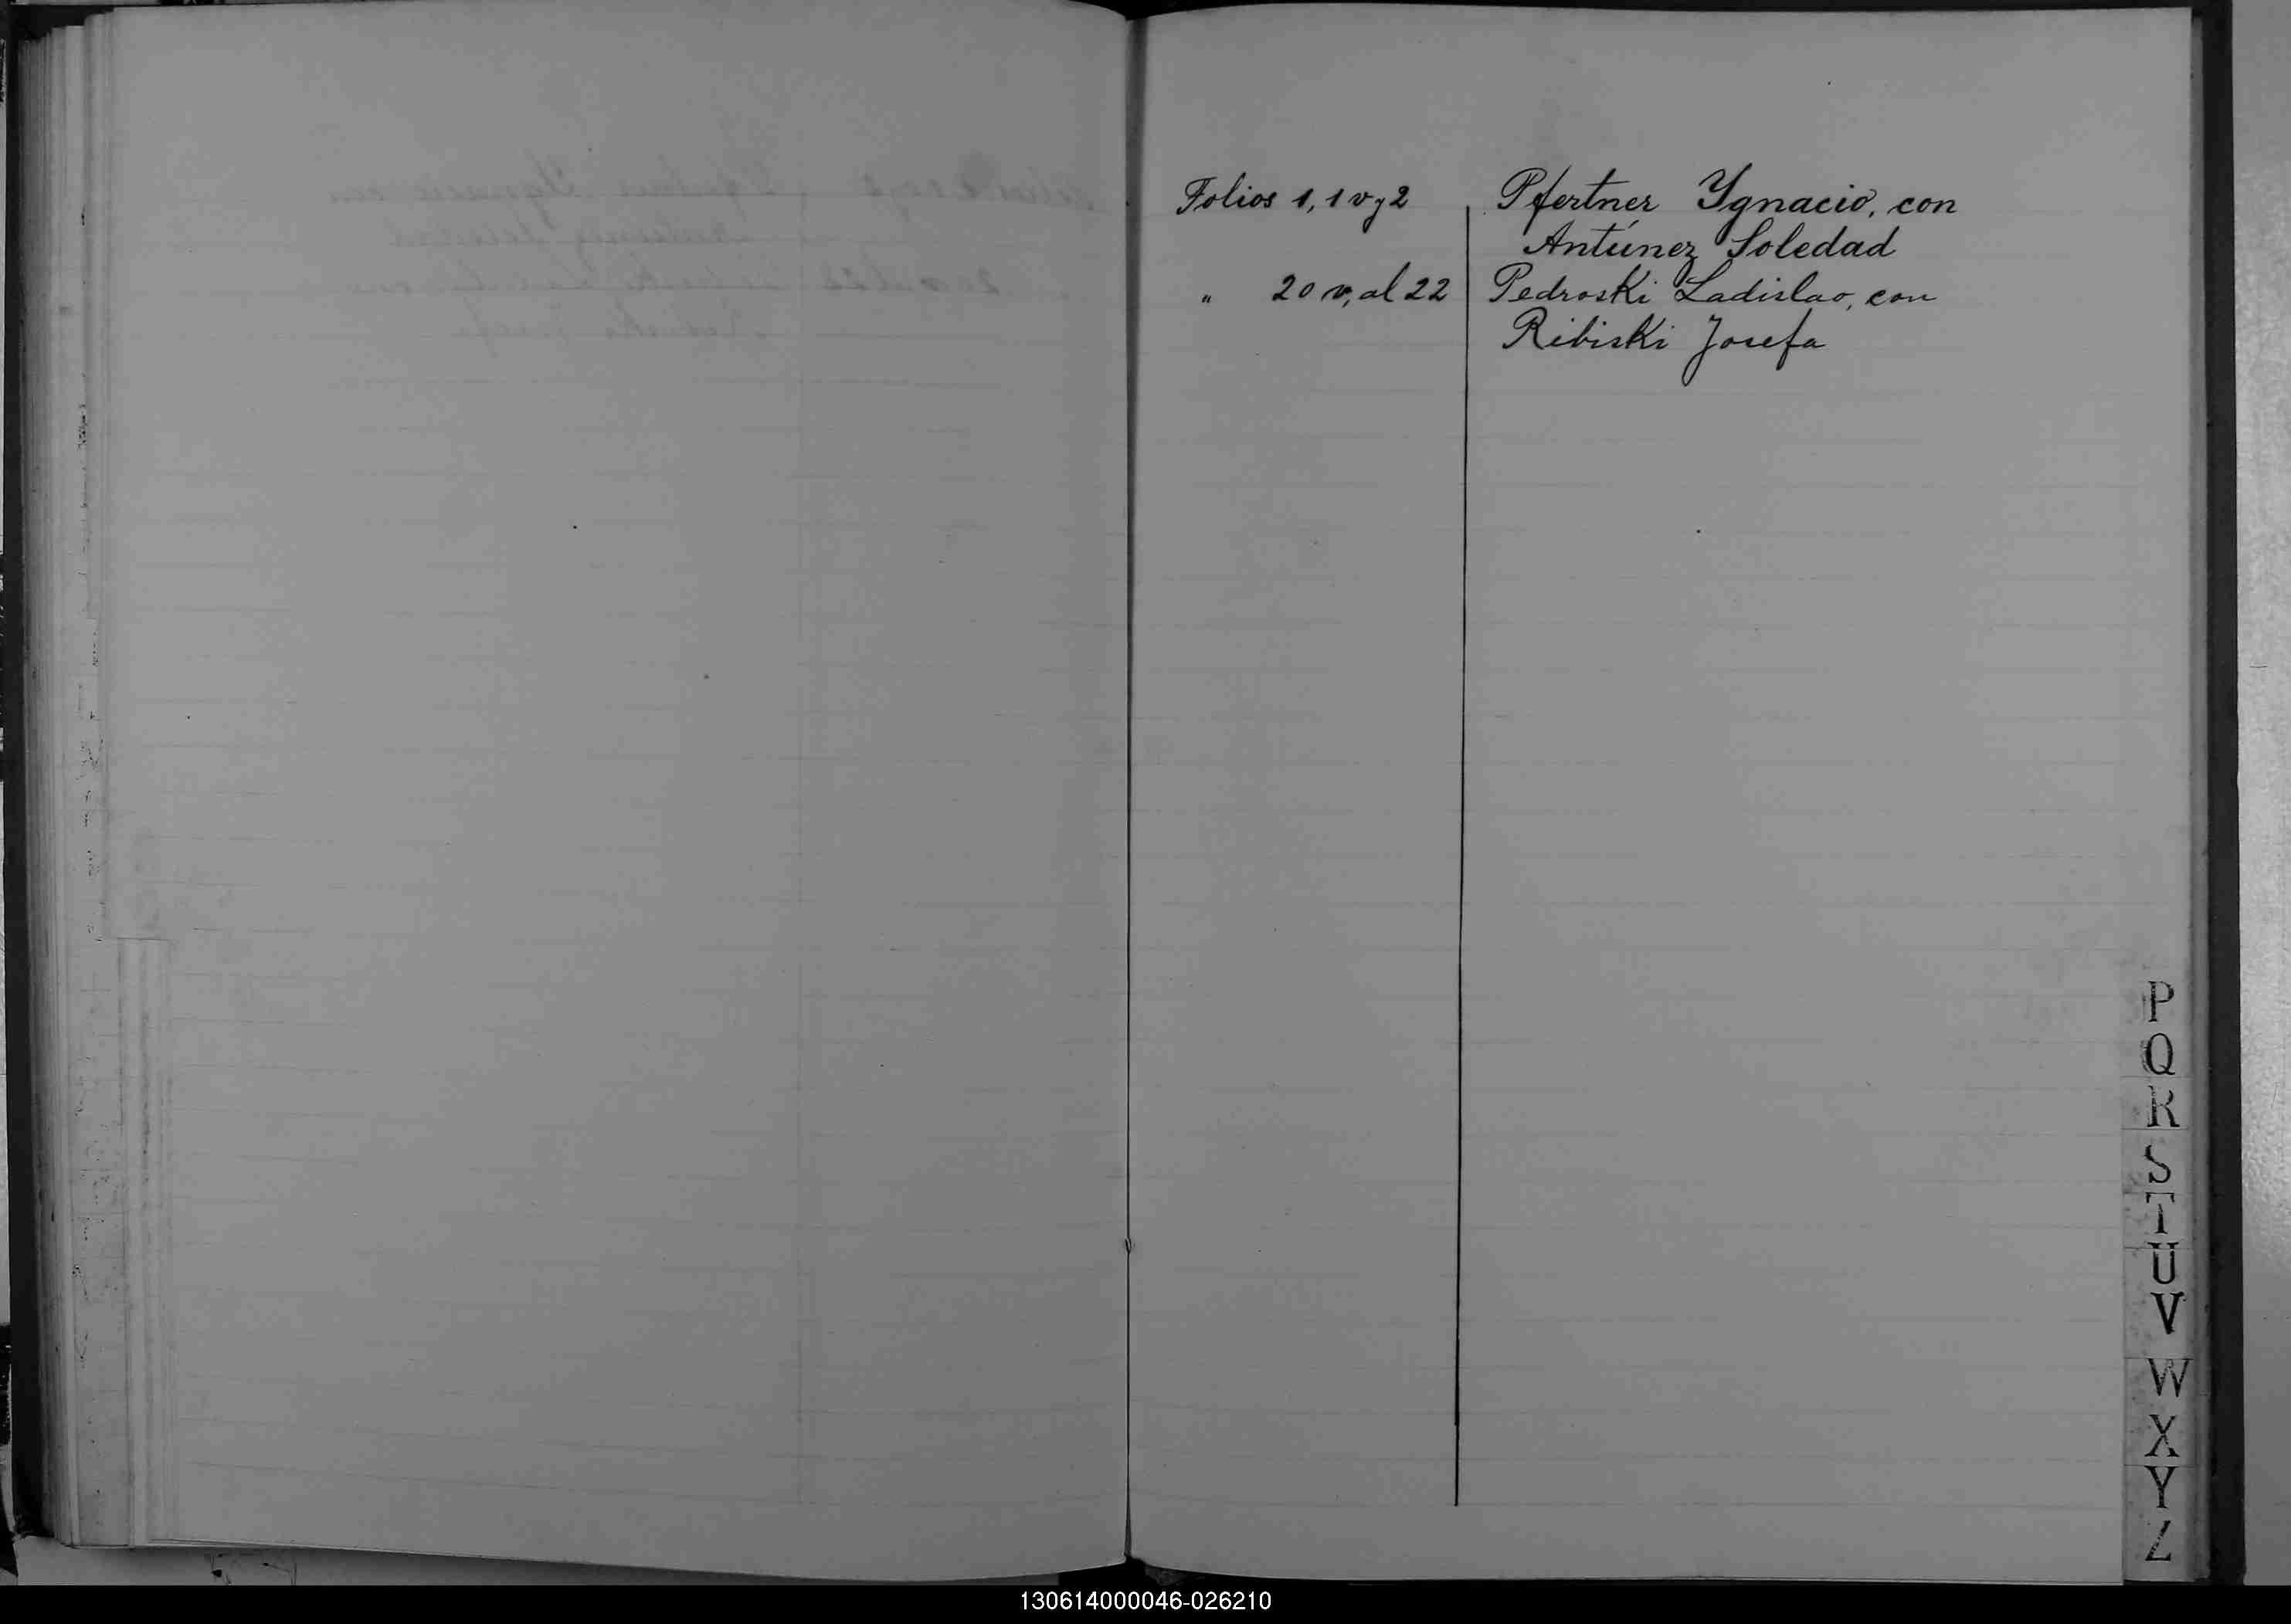 Folios 1, 1 v y 2 Pfertner Ygnacio, con
Antúnez Soledad
" 20 v, al 22 Pedroski Ladislao, con
Ribiski Josefa
P
Q
R
S
T
U
V
W
X
Y
Z
130614000046-026210